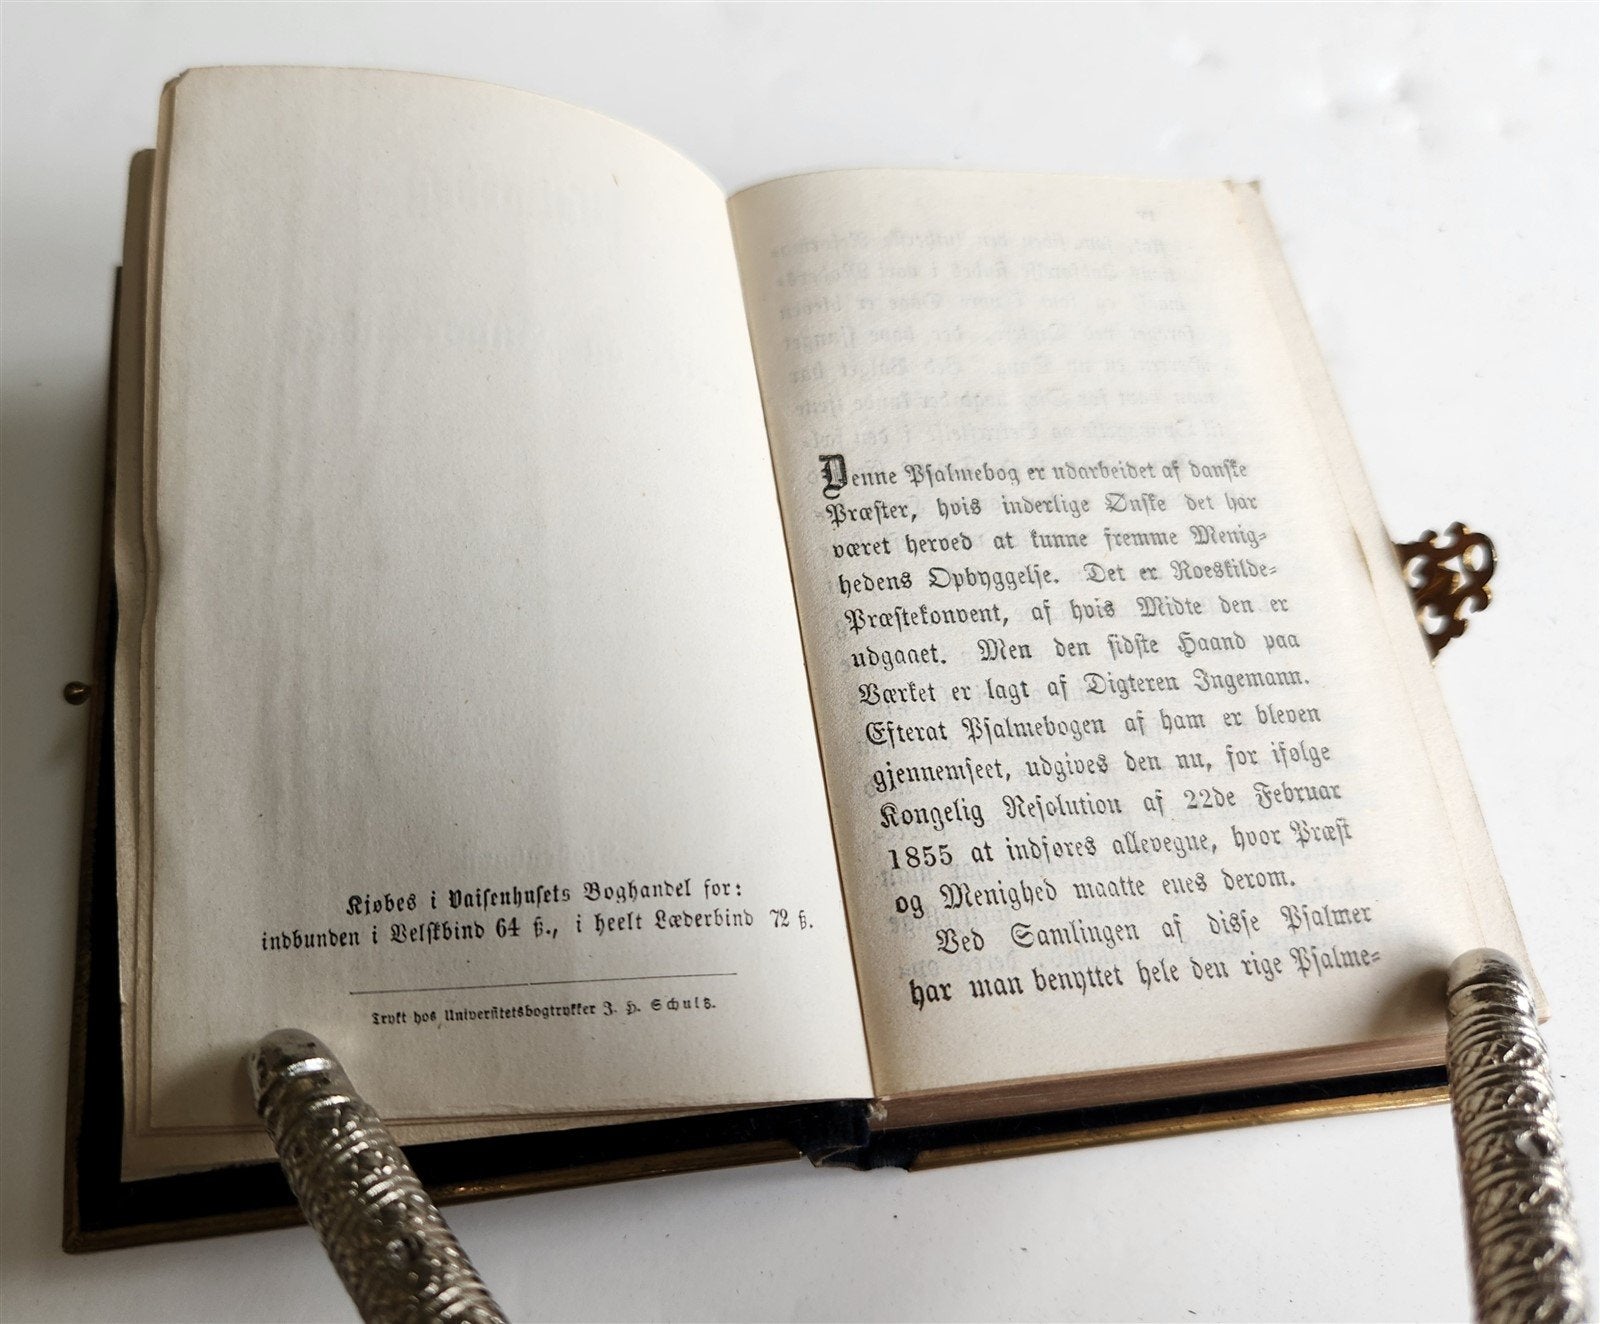 Kjøbes i Vaisenhusets Boghandel for:
indbunden i Velskbind 64 ß., i heelt Læderbind 72 ß.
Trykt hos Universitetsbogtrykker J. H. Schultz.
Denne Psalmebog er udarbeidet af danske
Præster, hvis inderlige Ønske det har
været herved at kunne fremme Menig-
hedens Opbyggelse. Det er Roeskilde-
Præstekonvent, af hvis Midte den er
udgaaet. Men den sidste Haand paa
Værket er lagt af Digteren Ingemann.
Efterat Psalmebogen af ham er bleven
gjennemseet, udgives den nu, for ifølge
Kongelig Resolution af 22de Februar
1855 at indføres allevegne, hvor Præst
og Menighed maatte enes derom.
Ved Samlingen af disse Psalmer
har man benyttet hele den rige Psalme-